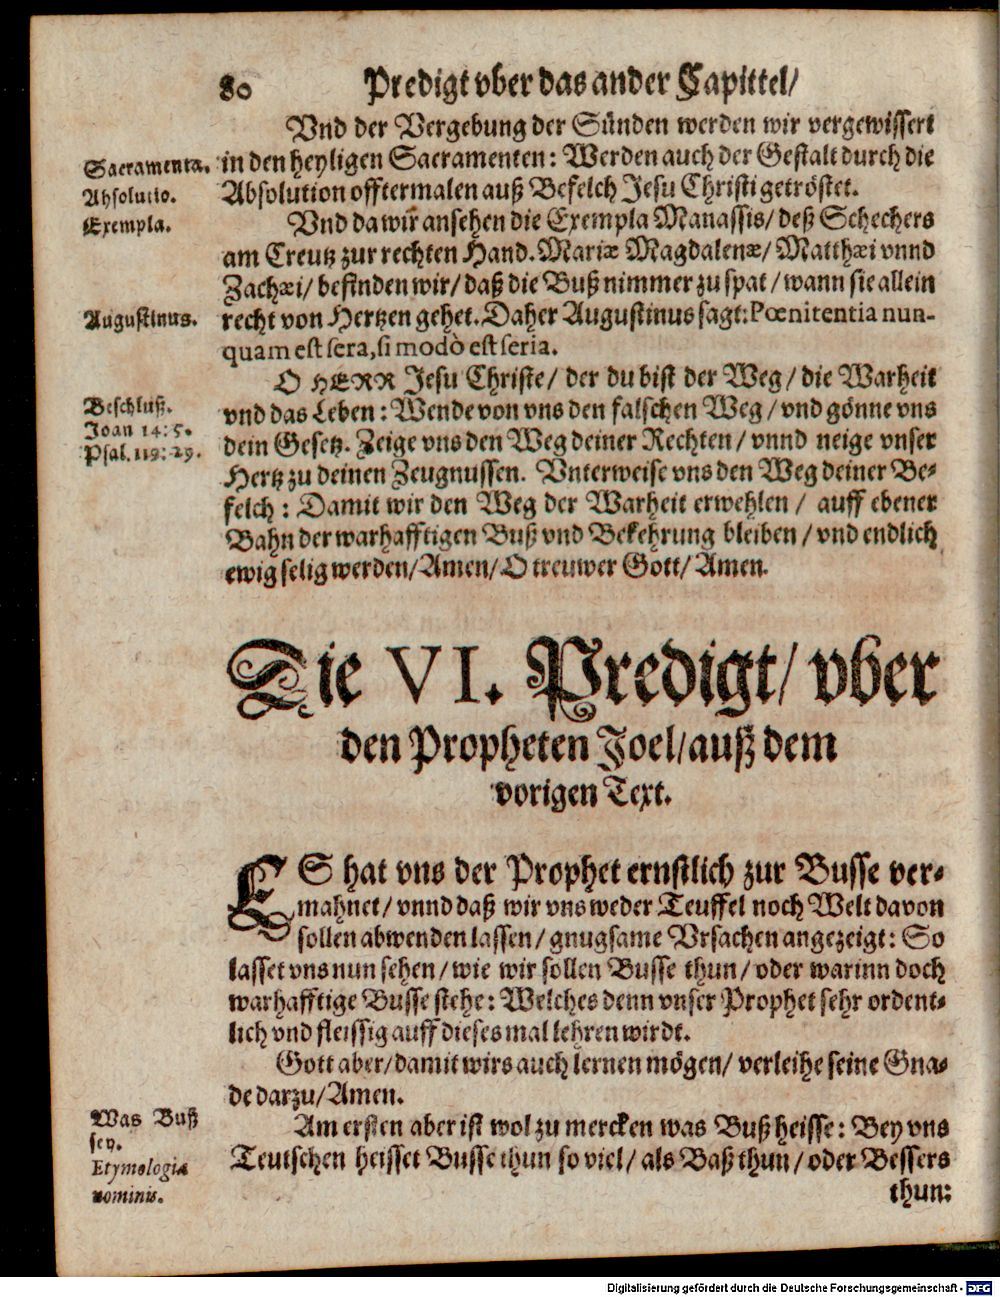 80 Predigt vber das ander Capittel/
Vnd der Vergebung der Sünden werden wir vergewissert
Sacramenta. in den heyligen Sacramenten: Werden auch der Gestalt durch die
Absolutio. Absolution offtermalen auß Befelch Jesu Christi getröstet.
Exempla. Vnd da wir ansehen die Exempla Manassis/ deß Schechers
am Creutz zur rechten Hand. Mariæ Magdalenæ/ Matthæi vnnd
Zachæi/ befinden wir/ daß die Buß nimmer zu spat/ wann sie allein
Augustinus. recht von Hertzen gehet. Daher Augustinus sagt: Pœnitentia nun-
quam est sera, si modò est seria.
O HERR Jesu Christe/ der du bist der Weg/ die Warheit
Beschluß. vnd das Leben: Wende von vns den falschen Weg/ vnd gönne vns
Joan 14: 5. dein Gesetz. Zeige vns den Weg deiner Rechten/ vnnd neige vnser
Psal. 119: 29. Hertz zu deinen Zeugnussen. Vnterweise vns den Weg deiner Be-
felch: Damit wir den Weg der Warheit erwehlen/ auff ebener
Bahn der warhafftigen Buß vnd Bekehrung bleiben/ vnd endlich
ewig selig werden/ Amen/ O treuwer Gott/ Amen.
Die VI. Predigt/ vber
den Propheten Joel/ auß dem
vorigen Text.
ES hat vns der Prophet ernstlich zur Busse ver-
mahnet/ vnnd daß wir vns weder Teuffel noch Welt davon
sollen abwenden lassen/ gnugsame Vrsachen angezeigt: So
lasset vns nun sehen/ wie wir sollen Busse thun/ oder warinn doch
warhafftige Busse stehe: Welches denn vnser Prophet sehr ordent-
lich vnd fleissig auff dieses mal lehren wirdt.
Gott aber/ damit wirs auch lernen mögen/ verleihe seine Gna-
de darzu/ Amen.
Was Buß sey. Am ersten aber ist wol zu mercken was Buß heisse: Bey vns
Etymologia nominis. Teutschen heisset Busse thun so viel/ als Baß thun/ oder Bessers
thun:
Digitalisierung gefördert durch die Deutsche Forschungsgemeinschaft - DFG